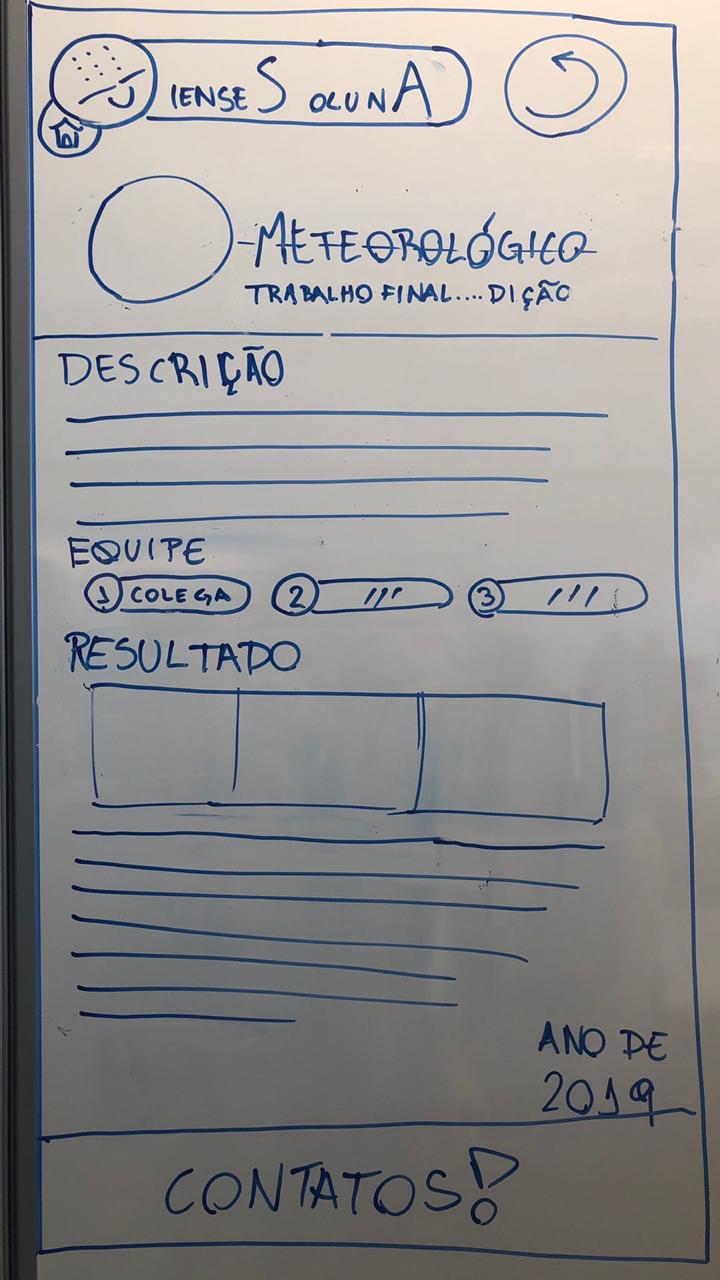 IENSE S OLUNA
METEOROLÓGICO
TRABALHO FINAL.... DIÇÃO
DESCRIÇÃO
EQUIPE
1 COLEGA 2 /// 3 ///
RESULTADO
ANO DE
2019
CONTATOS!